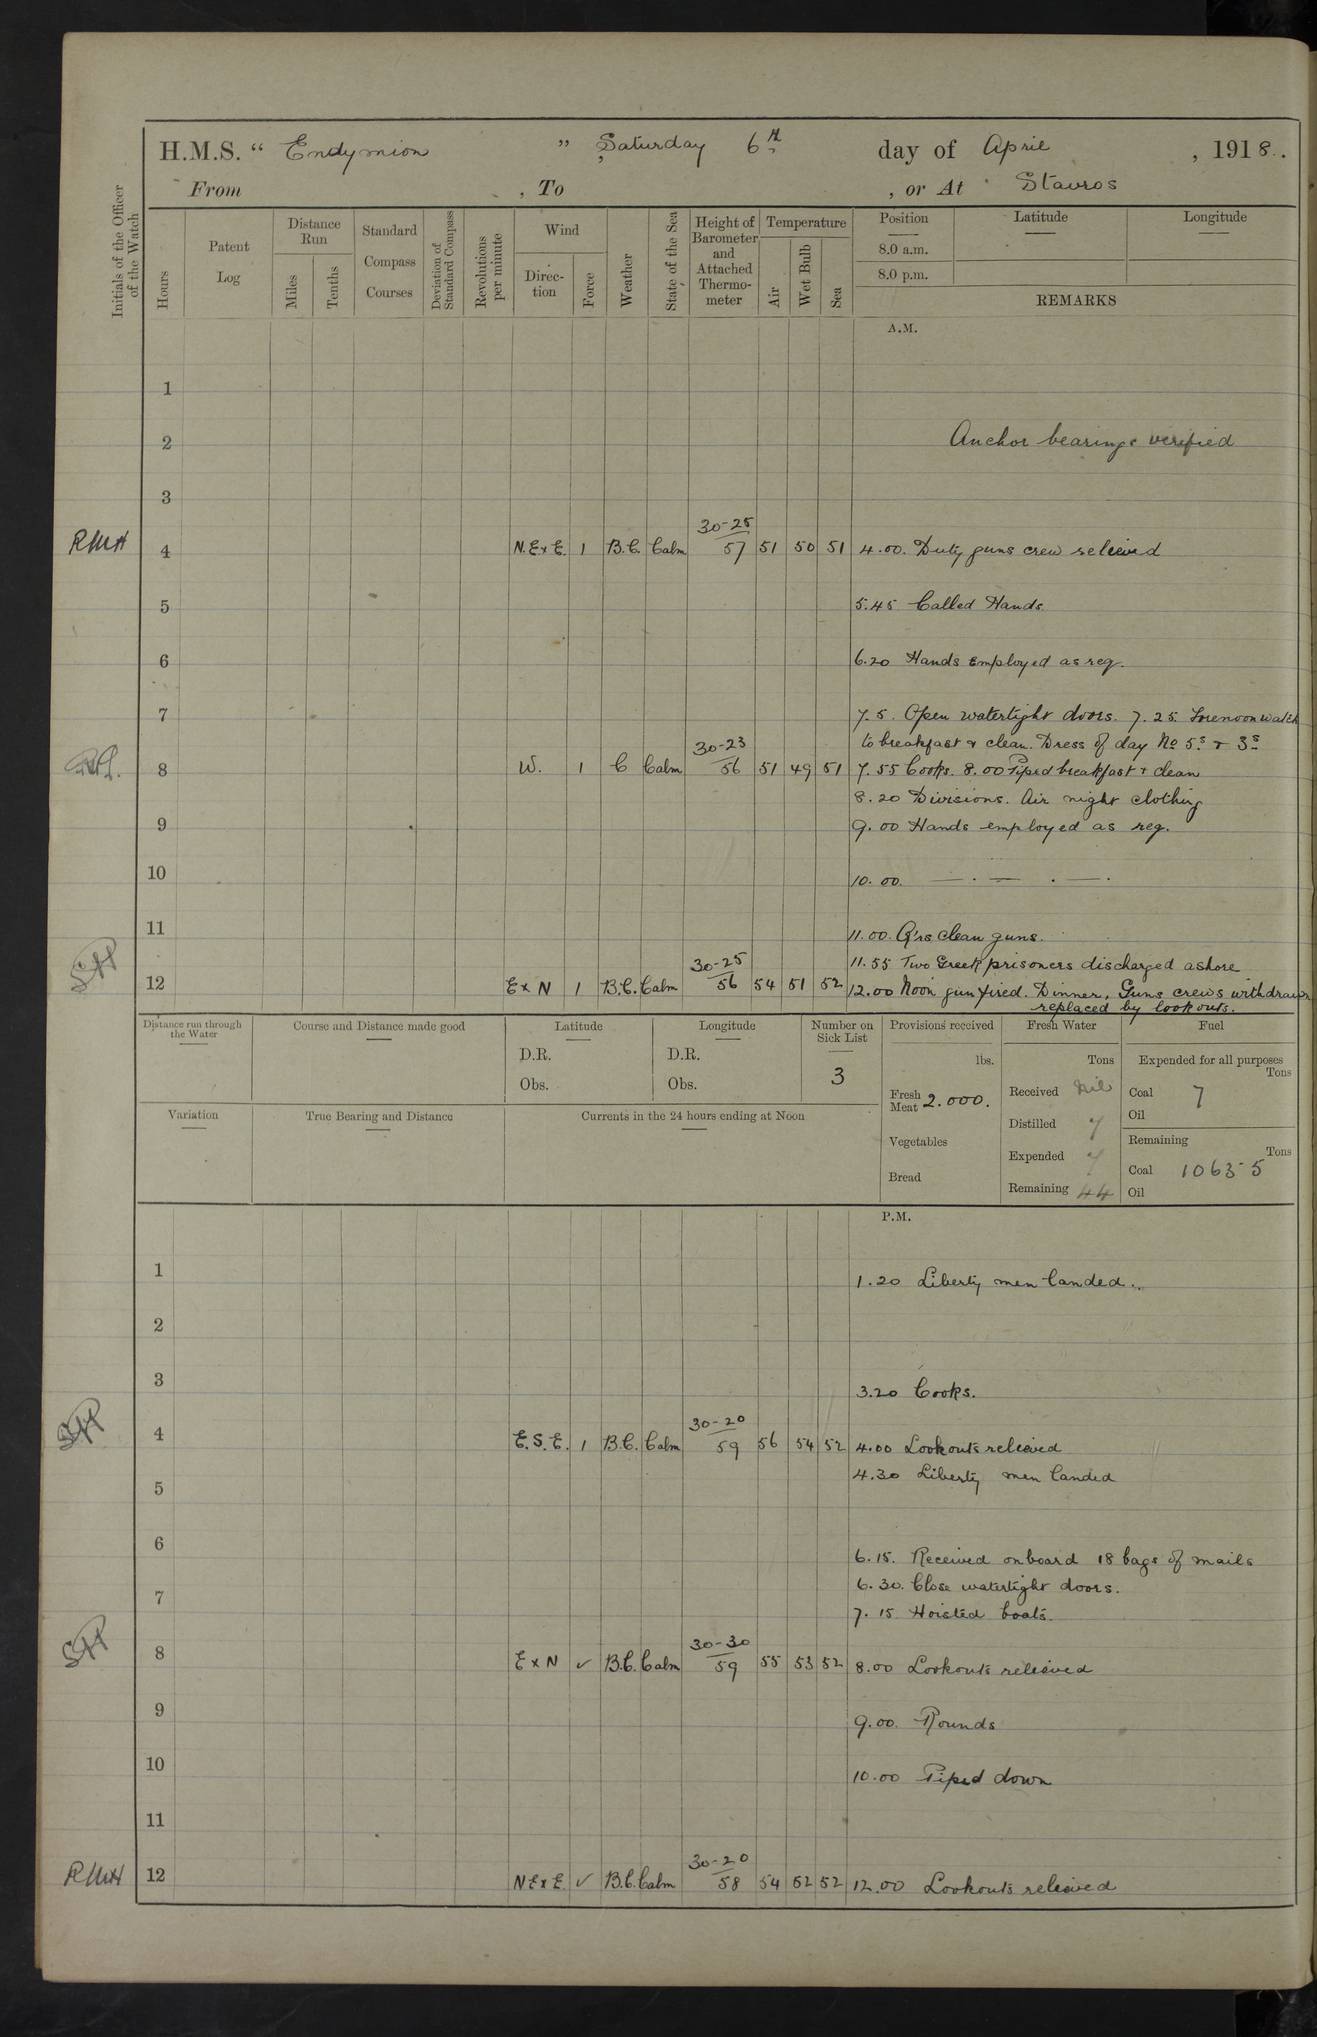 H.M.S. “ Endymion ” Saturday 6th day of April , 1918 .
From , To , or At Stavros
Initials of the Officer of the Watch
Hours
Patent Log
Distance Run
Miles
Tenths
Standard Compass Courses
Deviation of Standard Compass
Revolutions per minute
Wind
Direc-tion
Force
Weather
State of the Sea
Height of Barometer and Attached Thermo-meter
Temperature
Air
Wet Bulb
Sea
Position Latitude Longitude
8.0 a.m.
8.0 p.m.
REMARKS
A.M.
1
2 Anchor bearings verified
3
30-25
RMH 4 N.E x E. 1 B.C. Calm 57 51 50 51 4.00. Duty guns crew relieved
5 5.45 Called Hands
6 6.20 Hands employed as reg.
7 7.5. Open watertight doors. 7.25. Forenoon watch
30-23 to breakfast & clean. Dress of day No 5s & 3s
8 W. 1 C Calm 56 51 49 51 7.55 Cooks. 8.00 Piped breakfast & clean
8.20 Divisions. Air night clothing
9 9.00 Hands employed as reg.
10 10.00. — . — . — .
11 11.00. Q'rs clean guns.
30-25 11.55 Two Greek prisoners discharged ashore
12 E x N 1 B.C. Calm 56 54 51 52 12.00 Noon gun fired. Dinner, Guns crews withdrawn
replaced by lookouts.
Distance run through the Water
Course and Distance made good
Latitude
D.R.
Obs.
Longitude
D.R.
Obs.
Number on Sick List
3
Provisions received
lbs.
Fresh Meat 2.000.
Vegetables
Bread
Fresh Water
Tons
Received Nil
Distilled 7
Expended 7
Remaining 44
Fuel
Expended for all purposes
Tons
Coal 7
Oil
Remaining
Tons
Coal 1063-5
Oil
Variation
True Bearing and Distance
Currents in the 24 hours ending at Noon
P.M.
1 1.20 Liberty men landed.
2
3 3.20 Cooks.
30-20
4 E.S.E. 1 B.C. Calm 59 56 54 52 4.00 Lookouts relieved
4.30 Liberty men landed
5
6 6.15. Received onboard 18 bags of mails
6.30. Close watertight doors.
7 7.15 Hoisted boats.
30-30
8 E x N ✓ B.C. Calm 59 55 53 52 8.00 Lookouts relieved
9 9.00. Rounds
10 10.00 Piped down
11
30-20
RMH 12 N E x E. ✓ B.C. Calm 58 54 52 52 12.00 Lookouts relieved